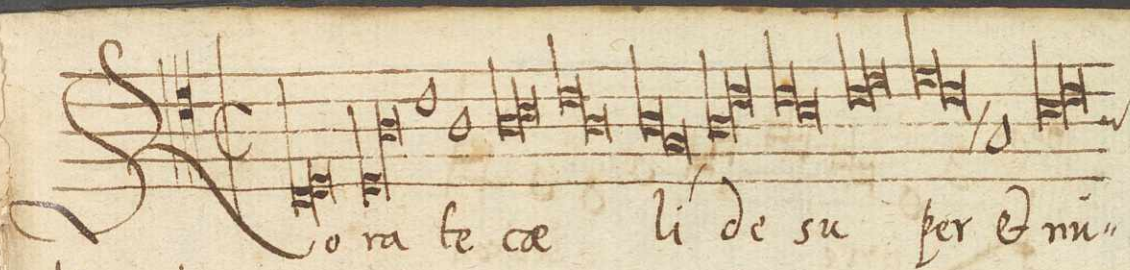 Rorate cæli desuper & nu=